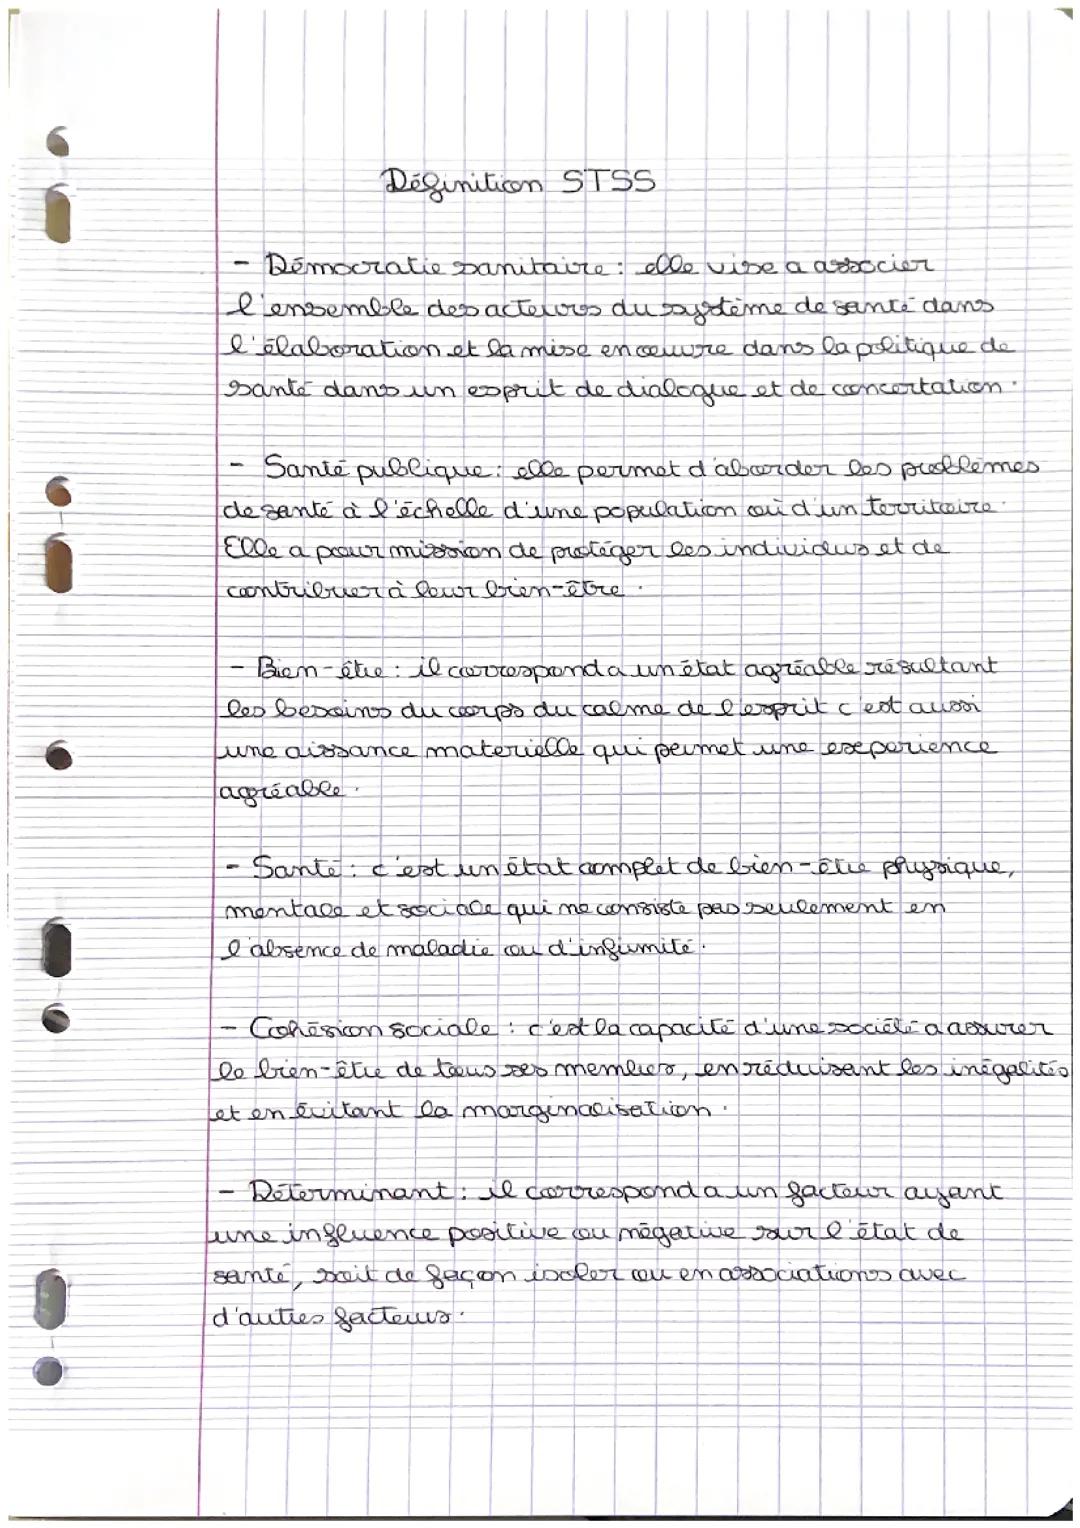 Définition STSS
- Démocratie sanitaire : elle vise a associer
l'ensemble des acteurs du système de santé dans
l'élaboration et la mise en œuvre dans la politique de
santé dans un esprit de dialogue et de concertation.
- Santé publique : elle permet d'aborder les problèmes
de santé à l'échelle d'une population ou d'un territoire.
Elle a pour mission de protéger les individus et de
contribuer à leur bien-être.
- Bien-être : il correspond a un état agréable résultant
les besoins du corps du calme de l'esprit c'est aussi
une aissance materielle qui permet une experience
agréable.
- Santé : c'est un état complet de bien-être physique,
mentale et sociale qui ne consiste pas seulement en
l'absence de maladie ou d'infirmité.
- Cohésion sociale : c'est la capacité d'une société a assurer
le bien-être de tous ses membres, en réduisant les inégalités
et en évitant la marginalisation.
- Déterminant : il correspond a un facteur ayant
une influence positive ou négative sur l'état de
santé, soit de façon isoler ou en associations avec
d'autres facteurs.